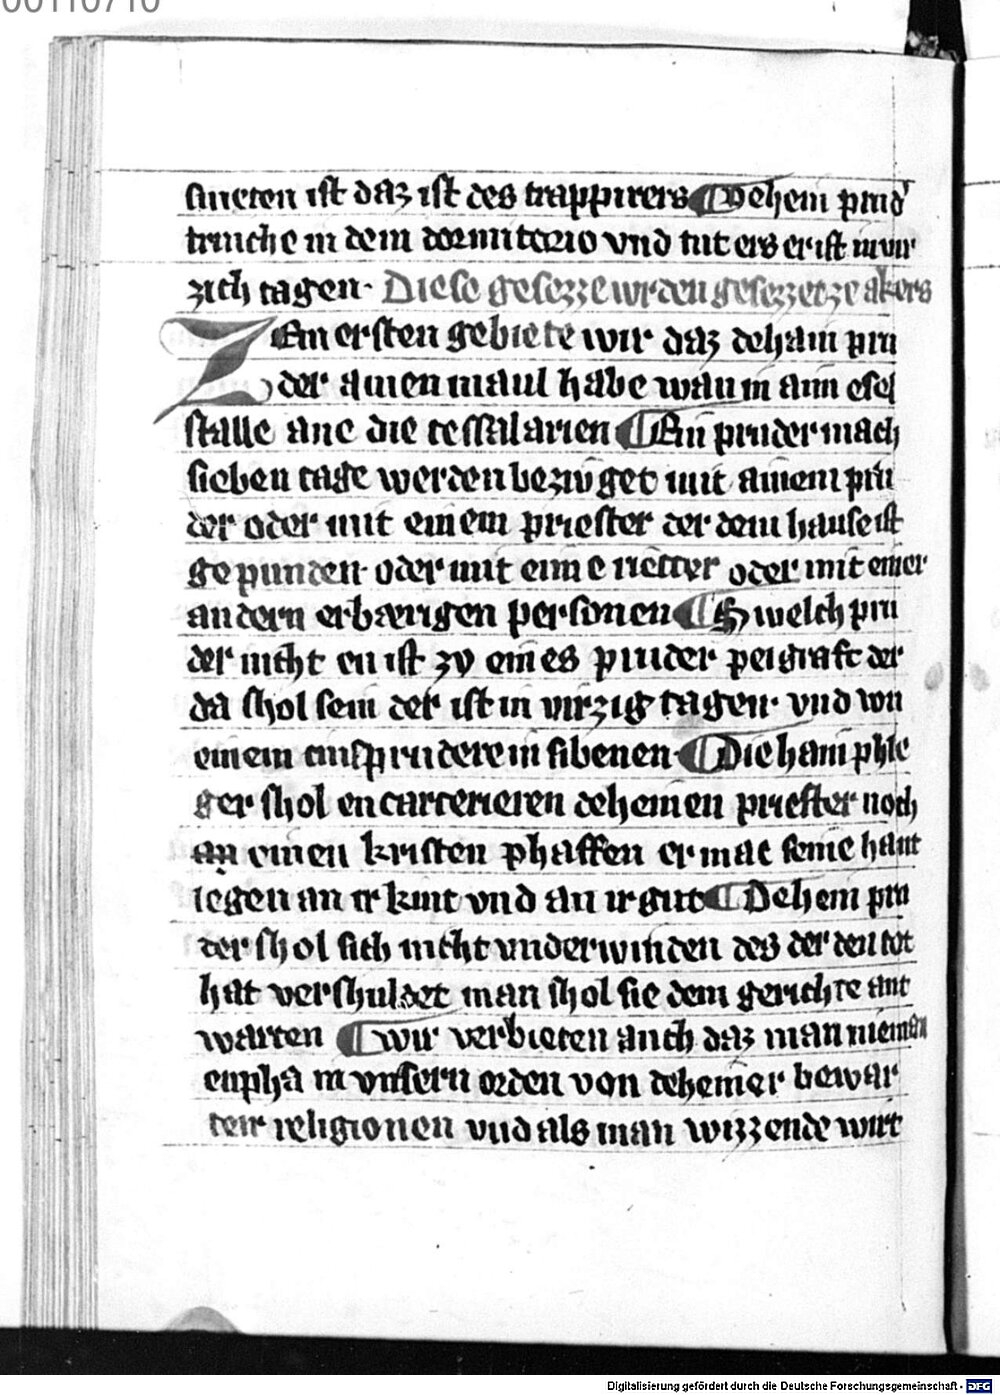 00110710
snieten ist daz ist des trappirers ¶ Dehein prud'
trinche in dem dormitorio vnd tut ers er ist in vir
zich tagen · Diese gesezze wrden gesezzet ze akers
Zem ersten gebiete wir daz dehain pru
der ainen maul habe wan in aim esel
stalle ane die tessalarien ¶ Ein pruder mach
sieben tage werden beziuget mit ainem pru
der oder mit einem priester der dem hause ist
gepunden oder mit eime rietter oder mit einer
andern erbærigen personen ¶ Swelch pru
der nicht en ist zv eines pruder peigraft der
da shol sein der ist in virzig tagen · vnd wn
einem einsprudere in sibenen · ¶ Die hain phle
ger shol encarcerieren deheinen priester noch
an einen kristen phaffen er mac seine hant
legen an er kint vnd an ir gut ¶ Dehein pru
der shol sich nicht vnderwinden des der den tot
hat vershuldet man shol sie dem gerichte ant
warten ¶ Wir verbieten auch daz man nieman
enpha in vnsern orden von deheiner bewar
teir religionen vnd als man wizzende wirt
Digitalisierung gefördert durch die Deutsche Forschungsgemeinschaft - DFG